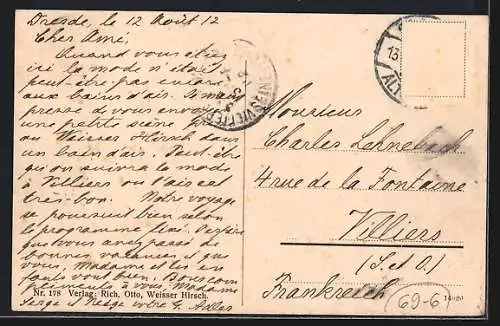 Dresde, le 12 Août 12
Cher Ami,
Quand vous étiez
ici la mode n'était
peut-être pas encore
aux bains d'air. Je m'em
presse de vous envoyer
une petite scène
au Weisser Hirsch dans
un bain d'air. Peut-être
qu'on suivra la mode
à Villiers ou l'air est
très bon. Notre voyage
se poursuit bien selon
le programme fixé. J'espère
que vous avez passé de
bonnes vacances et que
vous, Madame et les en
fants vous bien. Bores com
pliments à vous, Madame
Serge et votre
Nr. 178 Verlag: Rich. Otto, Weisser Hirsch.
VILLIERS
13
ALT
Monsieur
Charles Lehnebach
4 rue de la Fontaine
Villiers
(S. et O.)
Frankreich
(69-6)